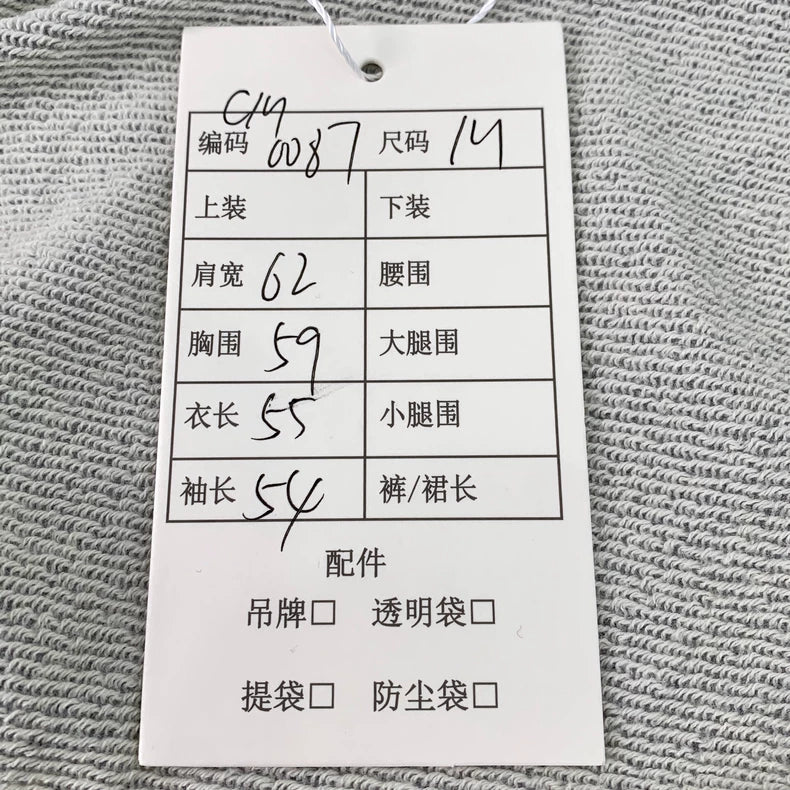 编码 C14 0087 尺码 14
上装 下装
肩宽 62 腰围
胸围 59 大腿围
衣长 55 小腿围
袖长 54 裤/裙长
配件
吊牌□ 透明袋□
提袋□ 防尘袋□